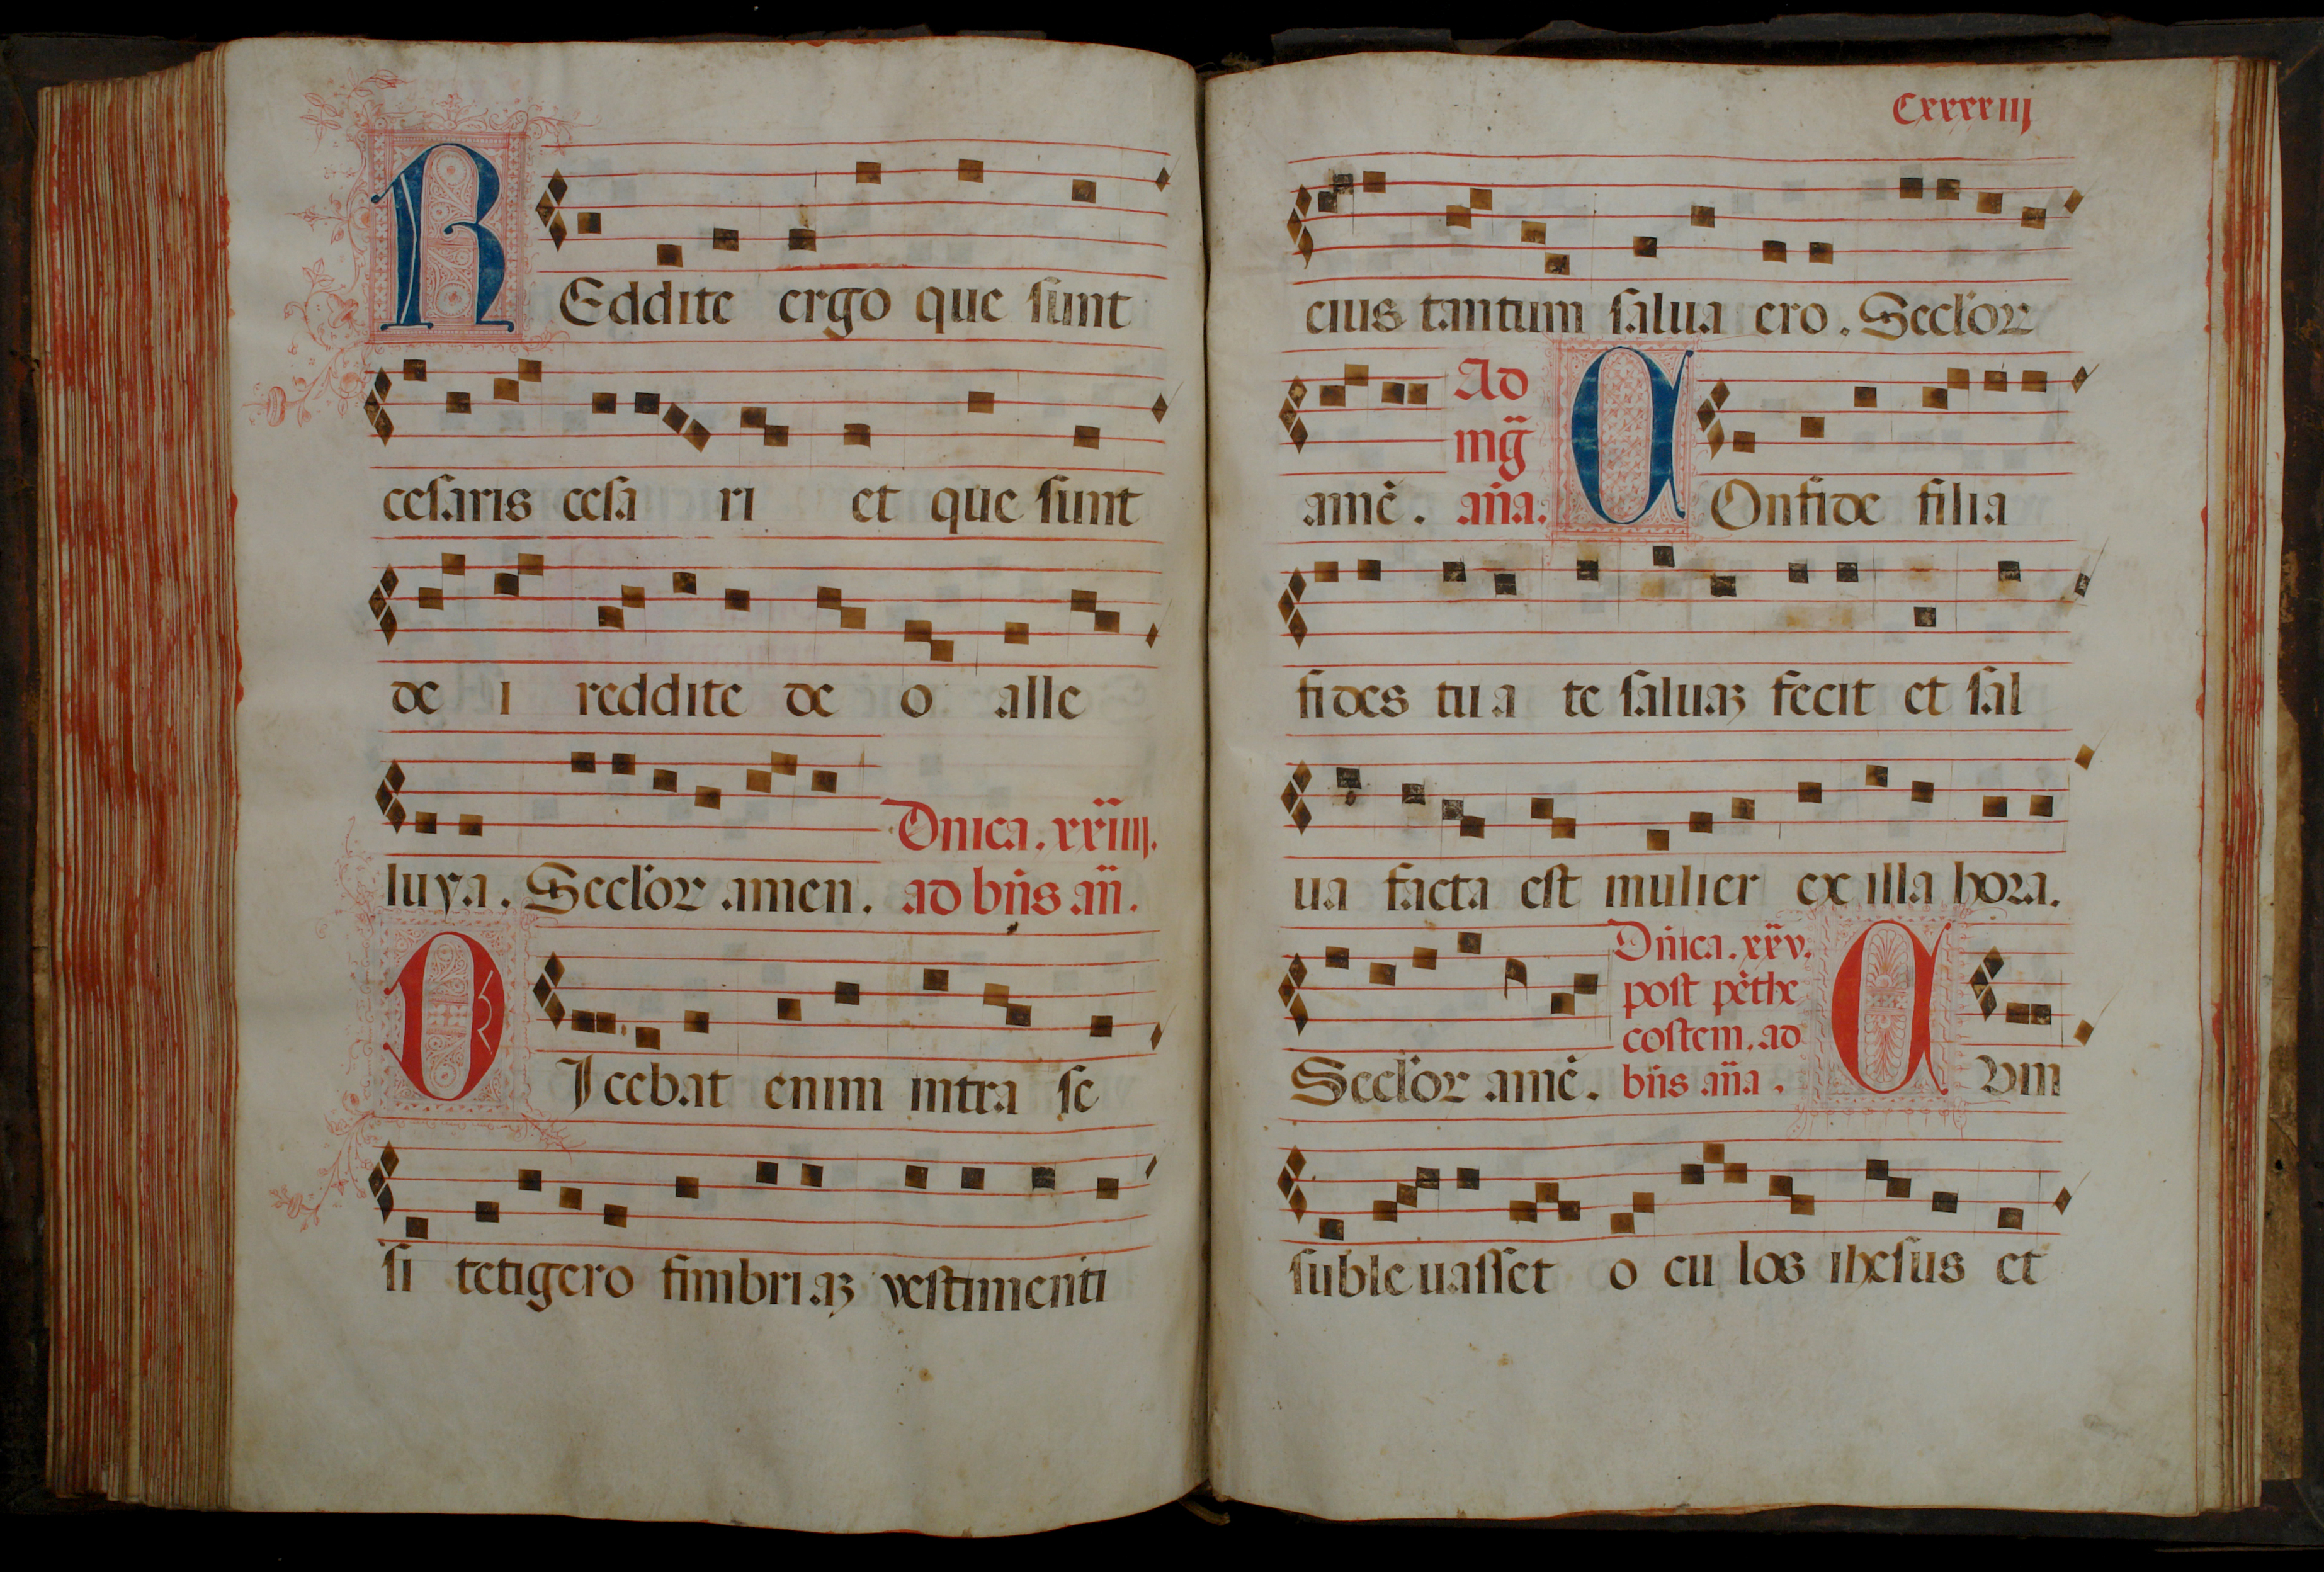 REddite ergo que sunt
cesaris cesa ri et que sunt
de i reddite de o alle
Dnica. xxiiij.
luya. Seclor amen. ad bn̄s an̄.
DIcebat enim intra se
si tetigero fimbriaꝫ vestimenti
Cxxxxiij
eius tantum salua ero. Seclor
Ad
mḡ
amē. an̄a. COnfide filia
fides tua te saluaꝫ fecit et sal
ua facta est mulier ex illa hora.
Dn̄ica. xxv.
post pēthe
costem. ad
Seclor amē. bn̄s an̄a. CVm
suble uasset o cu los ihesus et